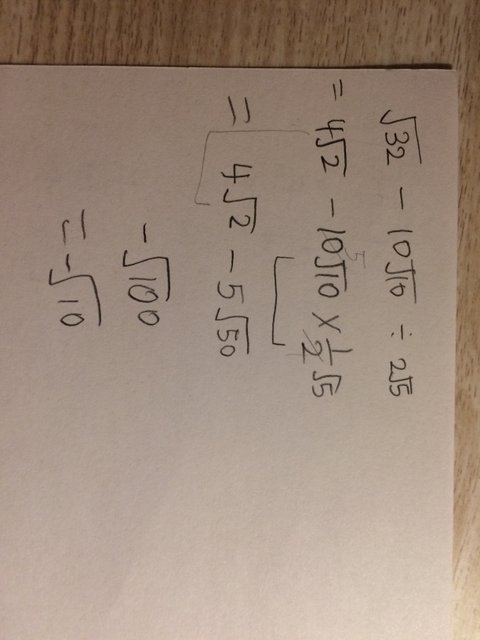 √32 - 10√10 ÷ 2√5
= 4√2 - 10√10 × 1/2 √5
5
= 4√2 - 5√50
-√100
= -√10